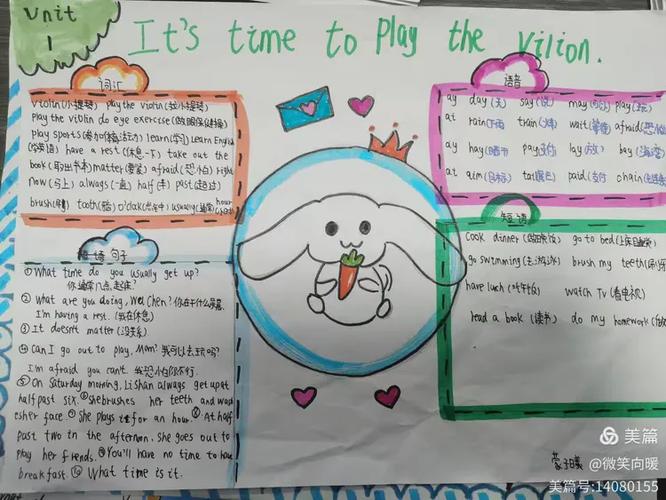 Unit
1
It's time to play the vilion.
词汇
violin(小提琴) play the violin(拉小提琴)
play the viblin do eye exercise(做眼保健操)
play sports(参加体育活动) learn(学习) Learn English
(学英语) have a rest(休息一下) take out the
book(取出书本) matter(要紧) afraid(恐怕) right
now(马上) always(一直) half(半) past(超过)
brush(刷) tooth(牙齿) o'clak(点钟) usually(通常) hour
语音
ay day(天) say(说) may(可以) play(玩)
at rain(下雨) train(火车) wait(等待) afraid(恐怕)
ay hay(干草) pay(支付) lay(放) bay(海湾)
at aim(目标) tail(尾巴) paid(支付) chain
短语
cook dinner(做晚饭) go to bed(上床睡觉)
go swimming(去游泳) brush my teeth(刷牙)
have luch(吃午饭) watch Tv(看电视)
read a book(读书) do my homework
句子
①What time do you usually get up?
你通常几点起床?
② What are you doing, Wei Chen? 你在干什么
I'm having a rest. (我在休息)
③It doesn't matter(没关系)
④Can I go out to play, Mom? 我可以去玩吗?
I'm afraid you can't. 我恐怕你不行.
⑤On Saturday morning, Li Shan always get up at
half past six. ⑥She brushes her teeth and wash
esher face. ⑦She plays it for an hour. ⑧At half
past two in the afternoon, she goes out to
play her friends. ⑨You'll have no time to have
breakfast. ⑩What time is it.
美篇
@微笑向暖
美篇号:14080155